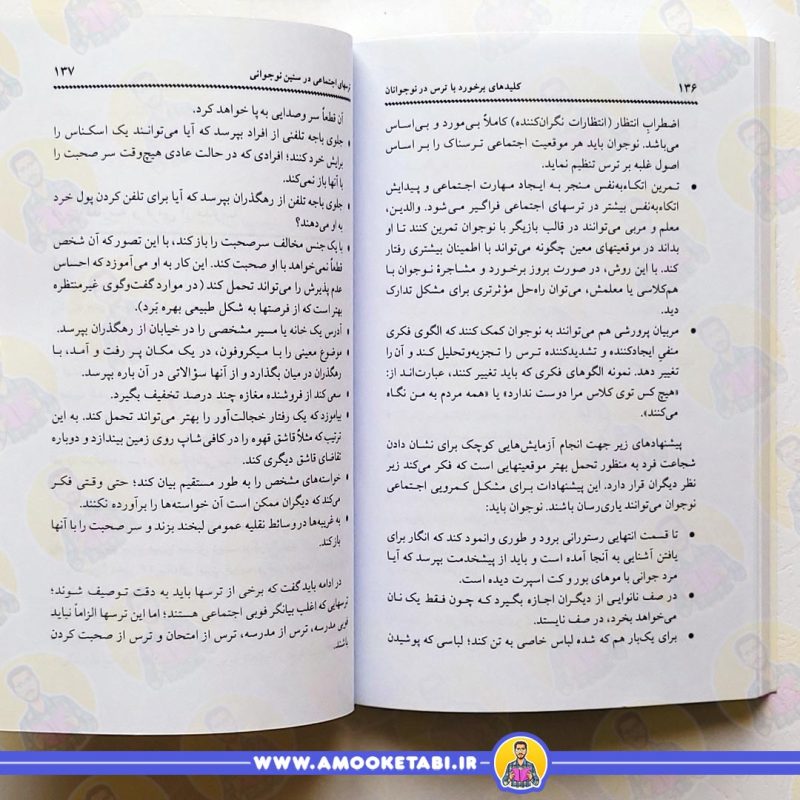 ۱۳۶ کلیدهای برخورد با ترس در نوجوانان
اضطراب انتظار (انتظارات نگران‌کننده) کاملاً بی‌مورد و بی‌اساس
می‌باشد. نوجوان باید هر موقعیت اجتماعی ترسناک را بر اساس
اصول غلبه بر ترس تنظیم نماید.
• تمرین اتکاءبه‌نفس منجر به ایجاد مهارت اجتماعی و پیدایش
اتکاءبه‌نفس بیشتر در ترسهای اجتماعی فراگیر می‌شود. والدین،
معلم و مربی می‌توانند در قالب بازیگر با نوجوان تمرین کنند تا او
بداند در موقعیتهای معین چگونه می‌تواند با اطمینان بیشتری رفتار
کند. با این روش، در صورت بروز برخورد و مشاجرهٔ نوجوان با
هم‌کلاسی یا معلمش، می‌توان راه‌حل مؤثرتری برای مشکل تدارک
دید.
• مربیان پرورشی هم می‌توانند به نوجوان کمک کنند که الگوی فکری
منفیِ ایجادکننده و تشدیدکننده ترس را تجزیه‌وتحلیل کند و آن را
تغییر دهد. نمونه الگوهای فکری که باید تغییر کنند، عبارت‌اند از:
«هیچ کس توی کلاس مرا دوست ندارد» یا «همه مردم به من نگاه
می‌کنند».
پیشنهادهای زیر جهت انجام آزمایش‌هایی کوچک برای نشان دادن
شجاعت فرد به منظور تحمل بهتر موقعیتهایی است که فکر می‌کند زیر
نظر دیگران قرار دارد. این پیشنهادات برای مشکل کمرویی اجتماعی
نوجوان می‌توانند یاری‌رسان باشند. نوجوان باید:
• تا قسمت انتهایی رستورانی برود و طوری وانمود کند که انگار برای
یافتن آشنایی به آنجا آمده است و باید از پیشخدمت بپرسد که آیا
مرد جوانی با موهای بور و کت اسپرت دیده است.
• در صف نانوایی از دیگران اجازه بگیرد که چون فقط یک نان
می‌خواهد بخرد، در صف نایستد.
• برای یک‌بار هم که شده لباس خاصی به تن کند؛ لباسی که پوشیدن
ترسهای اجتماعی در سنین نوجوانی ۱۳۷
آن قطعاً سر وصدایی به پا خواهد کرد.
• جلوی باجه تلفنی از افراد بپرسد که آیا می‌توانند یک اسکناس را
برایش خرد کنند؛ افرادی که در حالت عادی هیچ‌وقت سر صحبت را
با آنها باز نمی‌کند.
• جلوی باجه تلفن از رهگذران بپرسد که آیا برای تلفن کردن پول خرد
به او می‌دهند؟
• با یک جنس مخالف سرصحبت را باز کند، با این تصور که آن شخص
قطعاً نمی‌خواهد با او صحبت کند. این کار به او می‌آموزد که احساس
عدم پذیرش را می‌تواند تحمل کند (در موارد گفت‌وگوی غیرمنتظره
بهتر است که از فرصتها به شکل طبیعی بهره بَرد).
• آدرس یک خانه یا مسیر مشخصی را در خیابان از رهگذران بپرسد.
• موضوع معینی را با میکروفون، در یک مکان پر رفت و آمد، با
رهگذران در میان بگذارد و از آنها سؤالاتی در آن باره بپرسد.
• سعی کند از فروشنده مغازه چند درصد تخفیف بگیرد.
• بیاموزد که یک رفتار خجالت‌آور را بهتر می‌تواند تحمل کند. به این
ترتیب که مثلاً قاشق قهوه را در کافی‌شاپ روی زمین بیندازد و دوباره
تقاضای قاشق دیگری کند.
• خواسته‌های مشخص را به طور مستقیم بیان کند؛ حتی وقتی فکر
می‌کند که دیگران ممکن است آن خواسته‌ها را برآورده نکنند.
• به غریبه‌ها در وسائط نقلیه عمومی لبخند بزند و سر صحبت را با آنها
باز کند.
در ادامه باید گفت که برخی از ترسها باید به دقت توصیف شوند؛
ترسهایی که اغلب بیانگر فوبی اجتماعی هستند؛ اما این ترسها الزاماً نباید
فوبی مدرسه، ترس از مدرسه، ترس از امتحان و ترس از صحبت کردن
باشند.
WWW.AMOOKETABI.IR